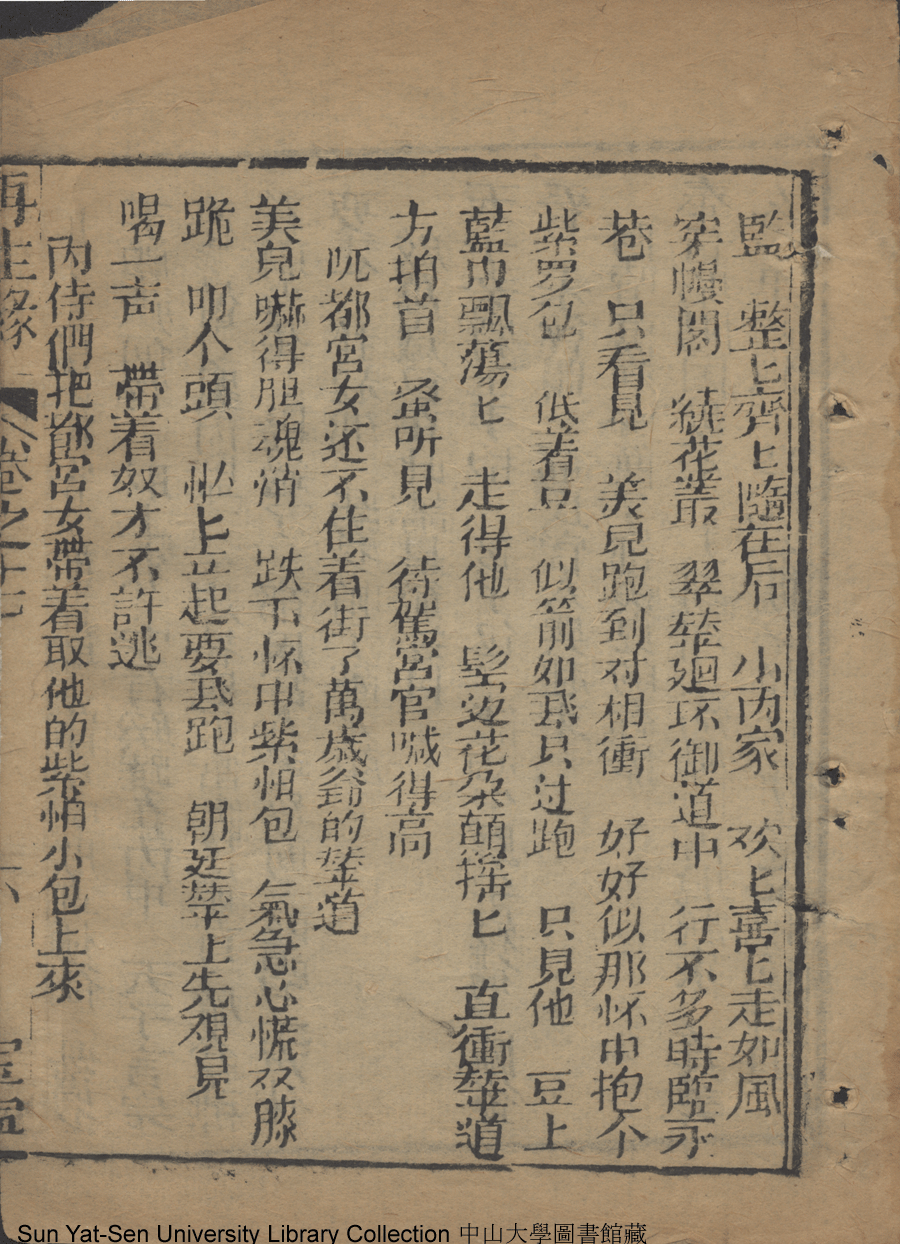 監　整匕齊匕隨在后　小内家　欢匕喜匕走如風
穿幔閣　繞花叢　翠輦廻环御道中　行不多時臨永
巷　只看見　美兒跑到对相衝　好好似那怀中抱个
紫罗包　低着豆　似箭如飛只过跑　只見他　豆上
藍巾飄蕩匕　走得他　髻边花朵顛搖匕　直衝輦道
方拍首　蚤听見　待駕宮官喊得高
呒都宮女还不住着街了萬歲爺的輦道
美兒嚇得胆魂消　跌下怀中紫帕包　氣急心慌双膝
跪　叩个頭　忙上立起要飛跑　朝廷輦上先視見
喝一声　帶着奴才不許逃
内侍們把都宮女帶着取他的紫帕小包上來
再生緣　卷之十七　六
Sun Yat-Sen University Library Collection 中山大學圖書館藏